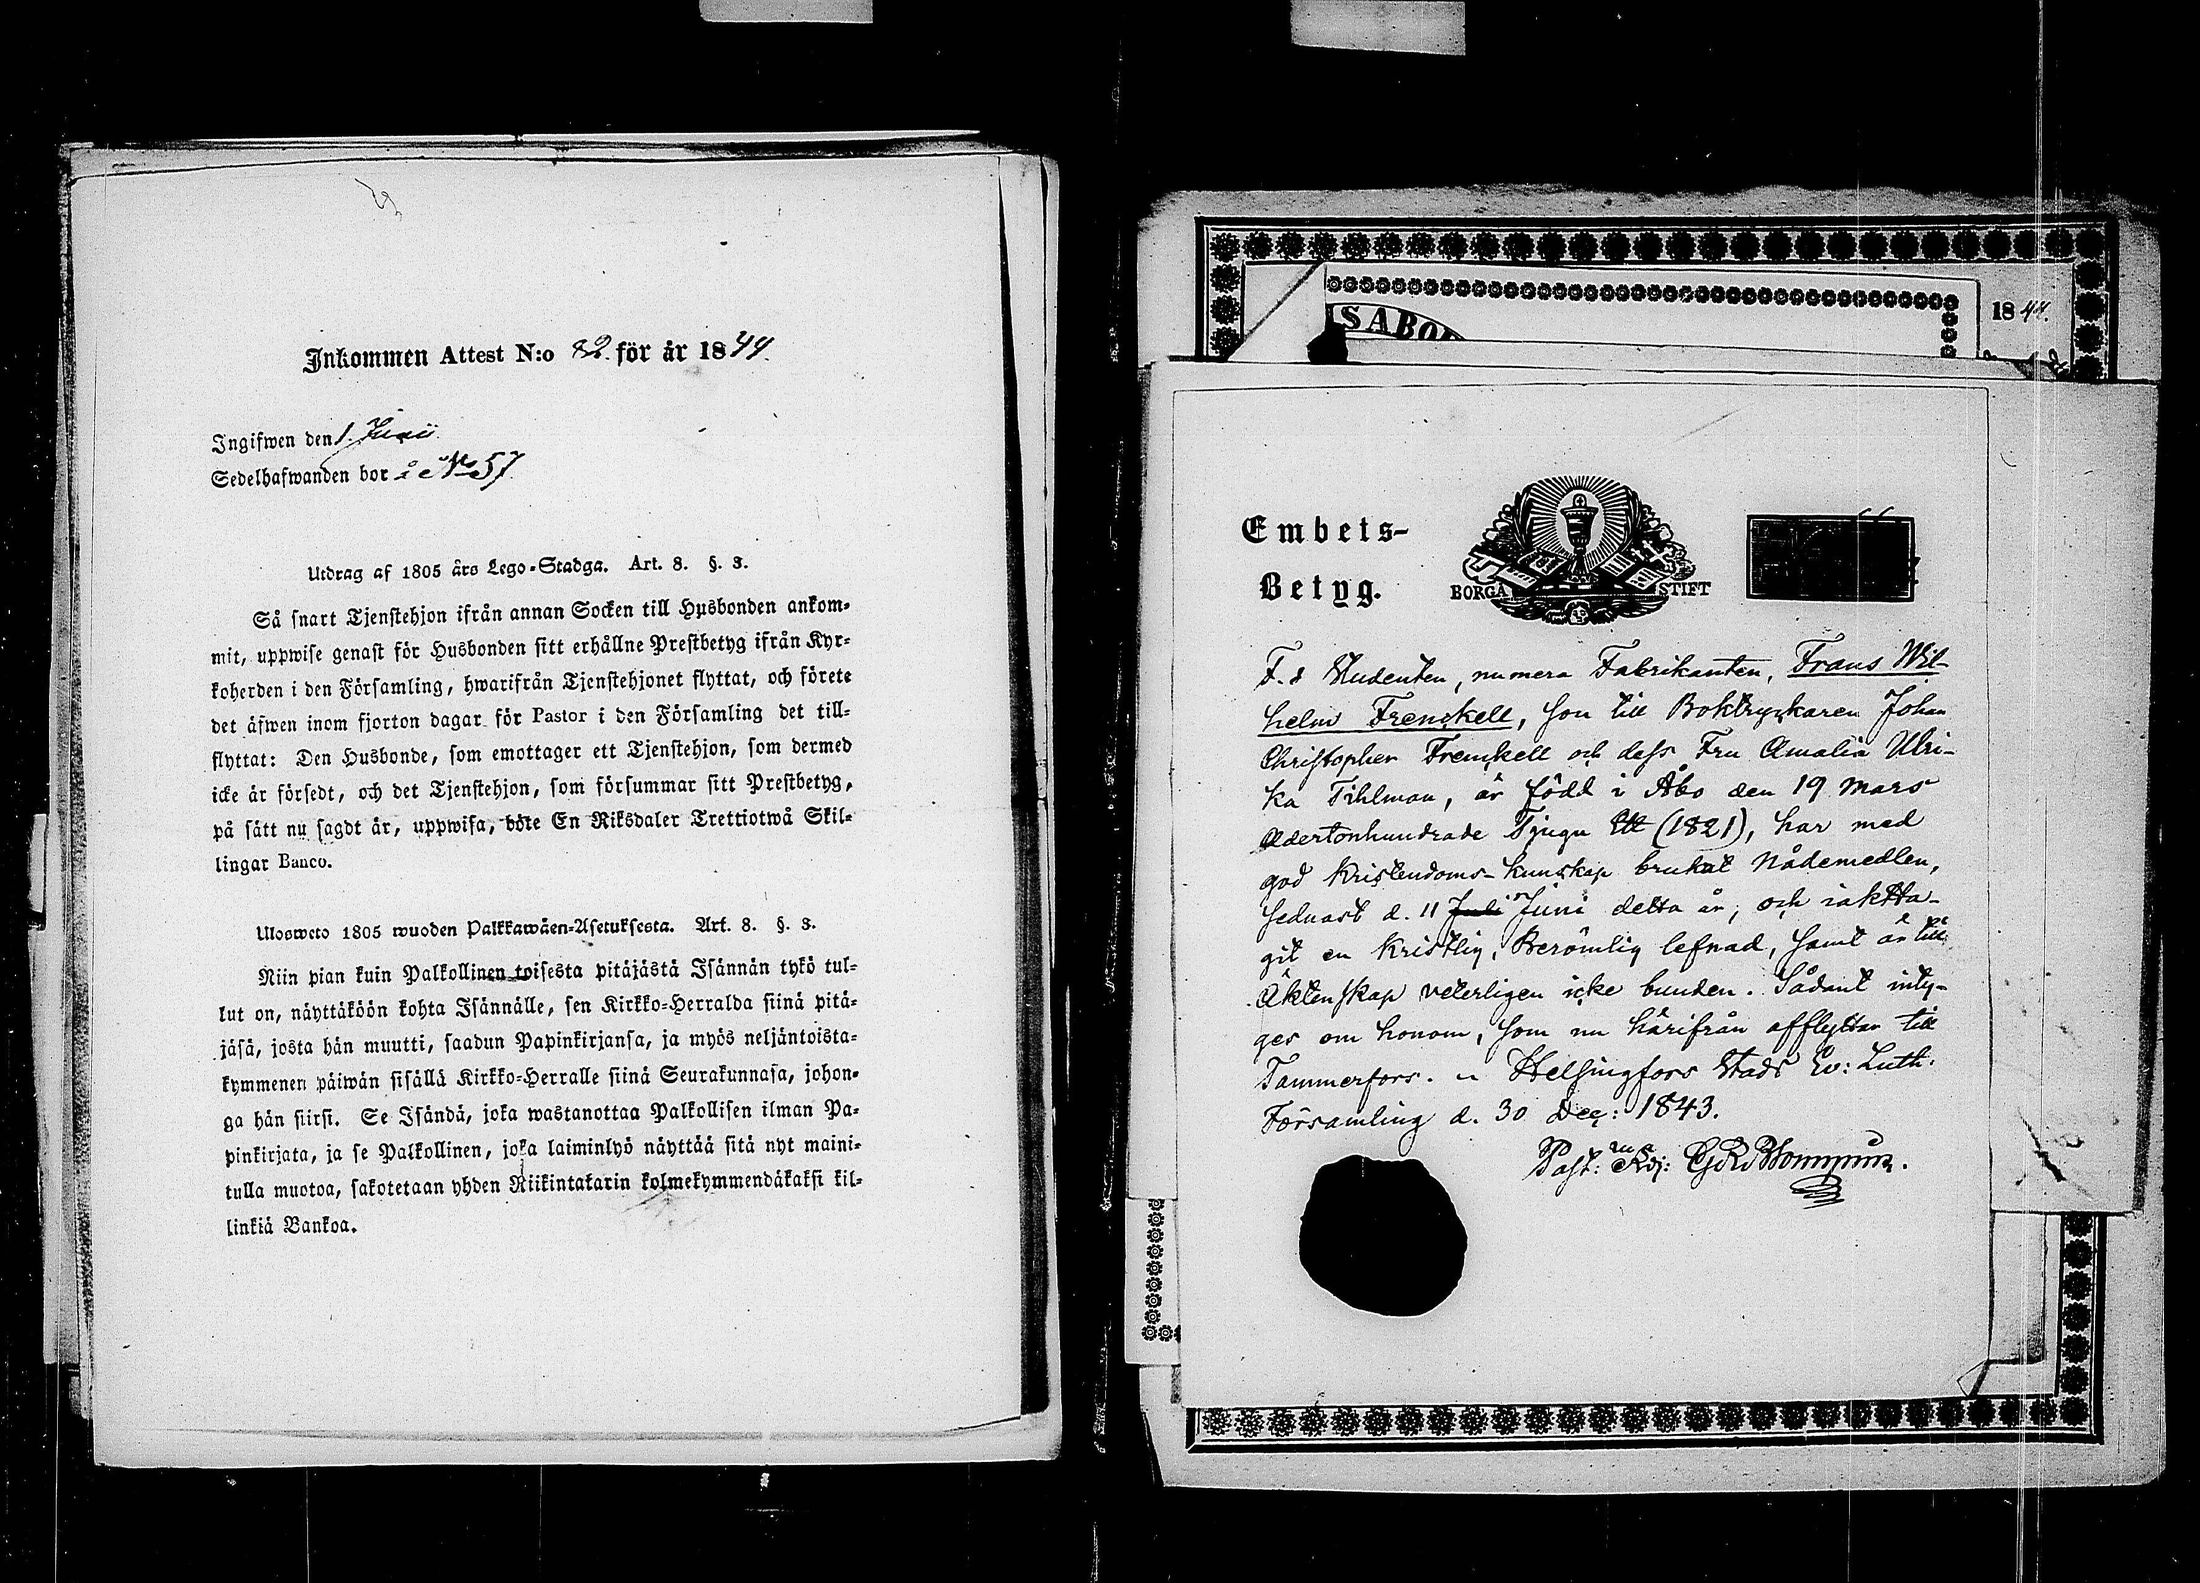 Inkommen Attest N:o 82. för år 1844.
Ingifwen den 1. Junii.
Sedelhafwanden bor i No 57.
Utdrag af 1805 års Lego-Stadga. Art. 8. §. 3.
Så snart Tjenstehjon ifrån annan Socken till Husbonden ankom-
mit, uppwise genast för Husbonden sitt erhållne Prestbetyg ifrån Kyr-
koherden i den Församling, hwarifrån Tjenstehjonet flyttat, och förete
det äfwen inom fjorton dagar för Pastor i den Församling det till-
flyttat: Den Husbonde, som emottager ett Tjenstehjon, som dermed
icke är försedt, och det Tjenstehjon, som försummar sitt Prestbetyg,
på sätt nu sagdt är, uppwisa, böte En Riksdaler Trettiotwå Skil-
lingar Banco.
Ulosweto 1805 wuoden Palkkawäen-Asetuksesta. Art. 8. §. 3.
Niin pian kuin Palkollinen toisesta pitäjästä Isännän tykö tul-
lut on, näyttäköön kohta Isännälle, sen Kirkko-Herralda siinä pitä-
jäsä, josta hän muutti, saadun Papinkirjansa, ja myös neljäntoista-
kymmenen päiwän sisällä Kirkko-Herralle siinä Seurakunnasa, johon-
ga hän siirsi. Se Isändä, joka wastanottaa Palkollisen ilman Pa-
pinkirjata, ja se Palkollinen, joka laiminlyö näyttää sitä nyt maini-
tulla muotoa, sakotetaan yhden Riikintalarin kolmekymmendäkaksi kil-
linkiä Bankoa.
1844.
SABO
Embets-
Betyg.
BORGÅ STIFT
F. d Studenten, numera Fabrikanten, Frans Wil-
helm Frenckell, son till Boktryckaren Johan
Christopher Frenckell och dess Fru Amalia Ulri-
ka Tihlman, är född i Åbo den 19 Mars
Adertonhundrade Tjugu Ett (1821), har med
god Kristendoms-kunskap brukat Nådemedlen,
sednast d. 11 Juli Juni detta år, och iaktta-
git en Kristlig, Berömlig lefnad, samt är till
Äktenskap veterligen icke bunden. Sådant inty-
ges om honom, som nu härifrån afflyttar till
Tammerfors. Helsingfors Stads Ev: Luth:
Församling d. 30 Dec: 1843.
Past: Adj: